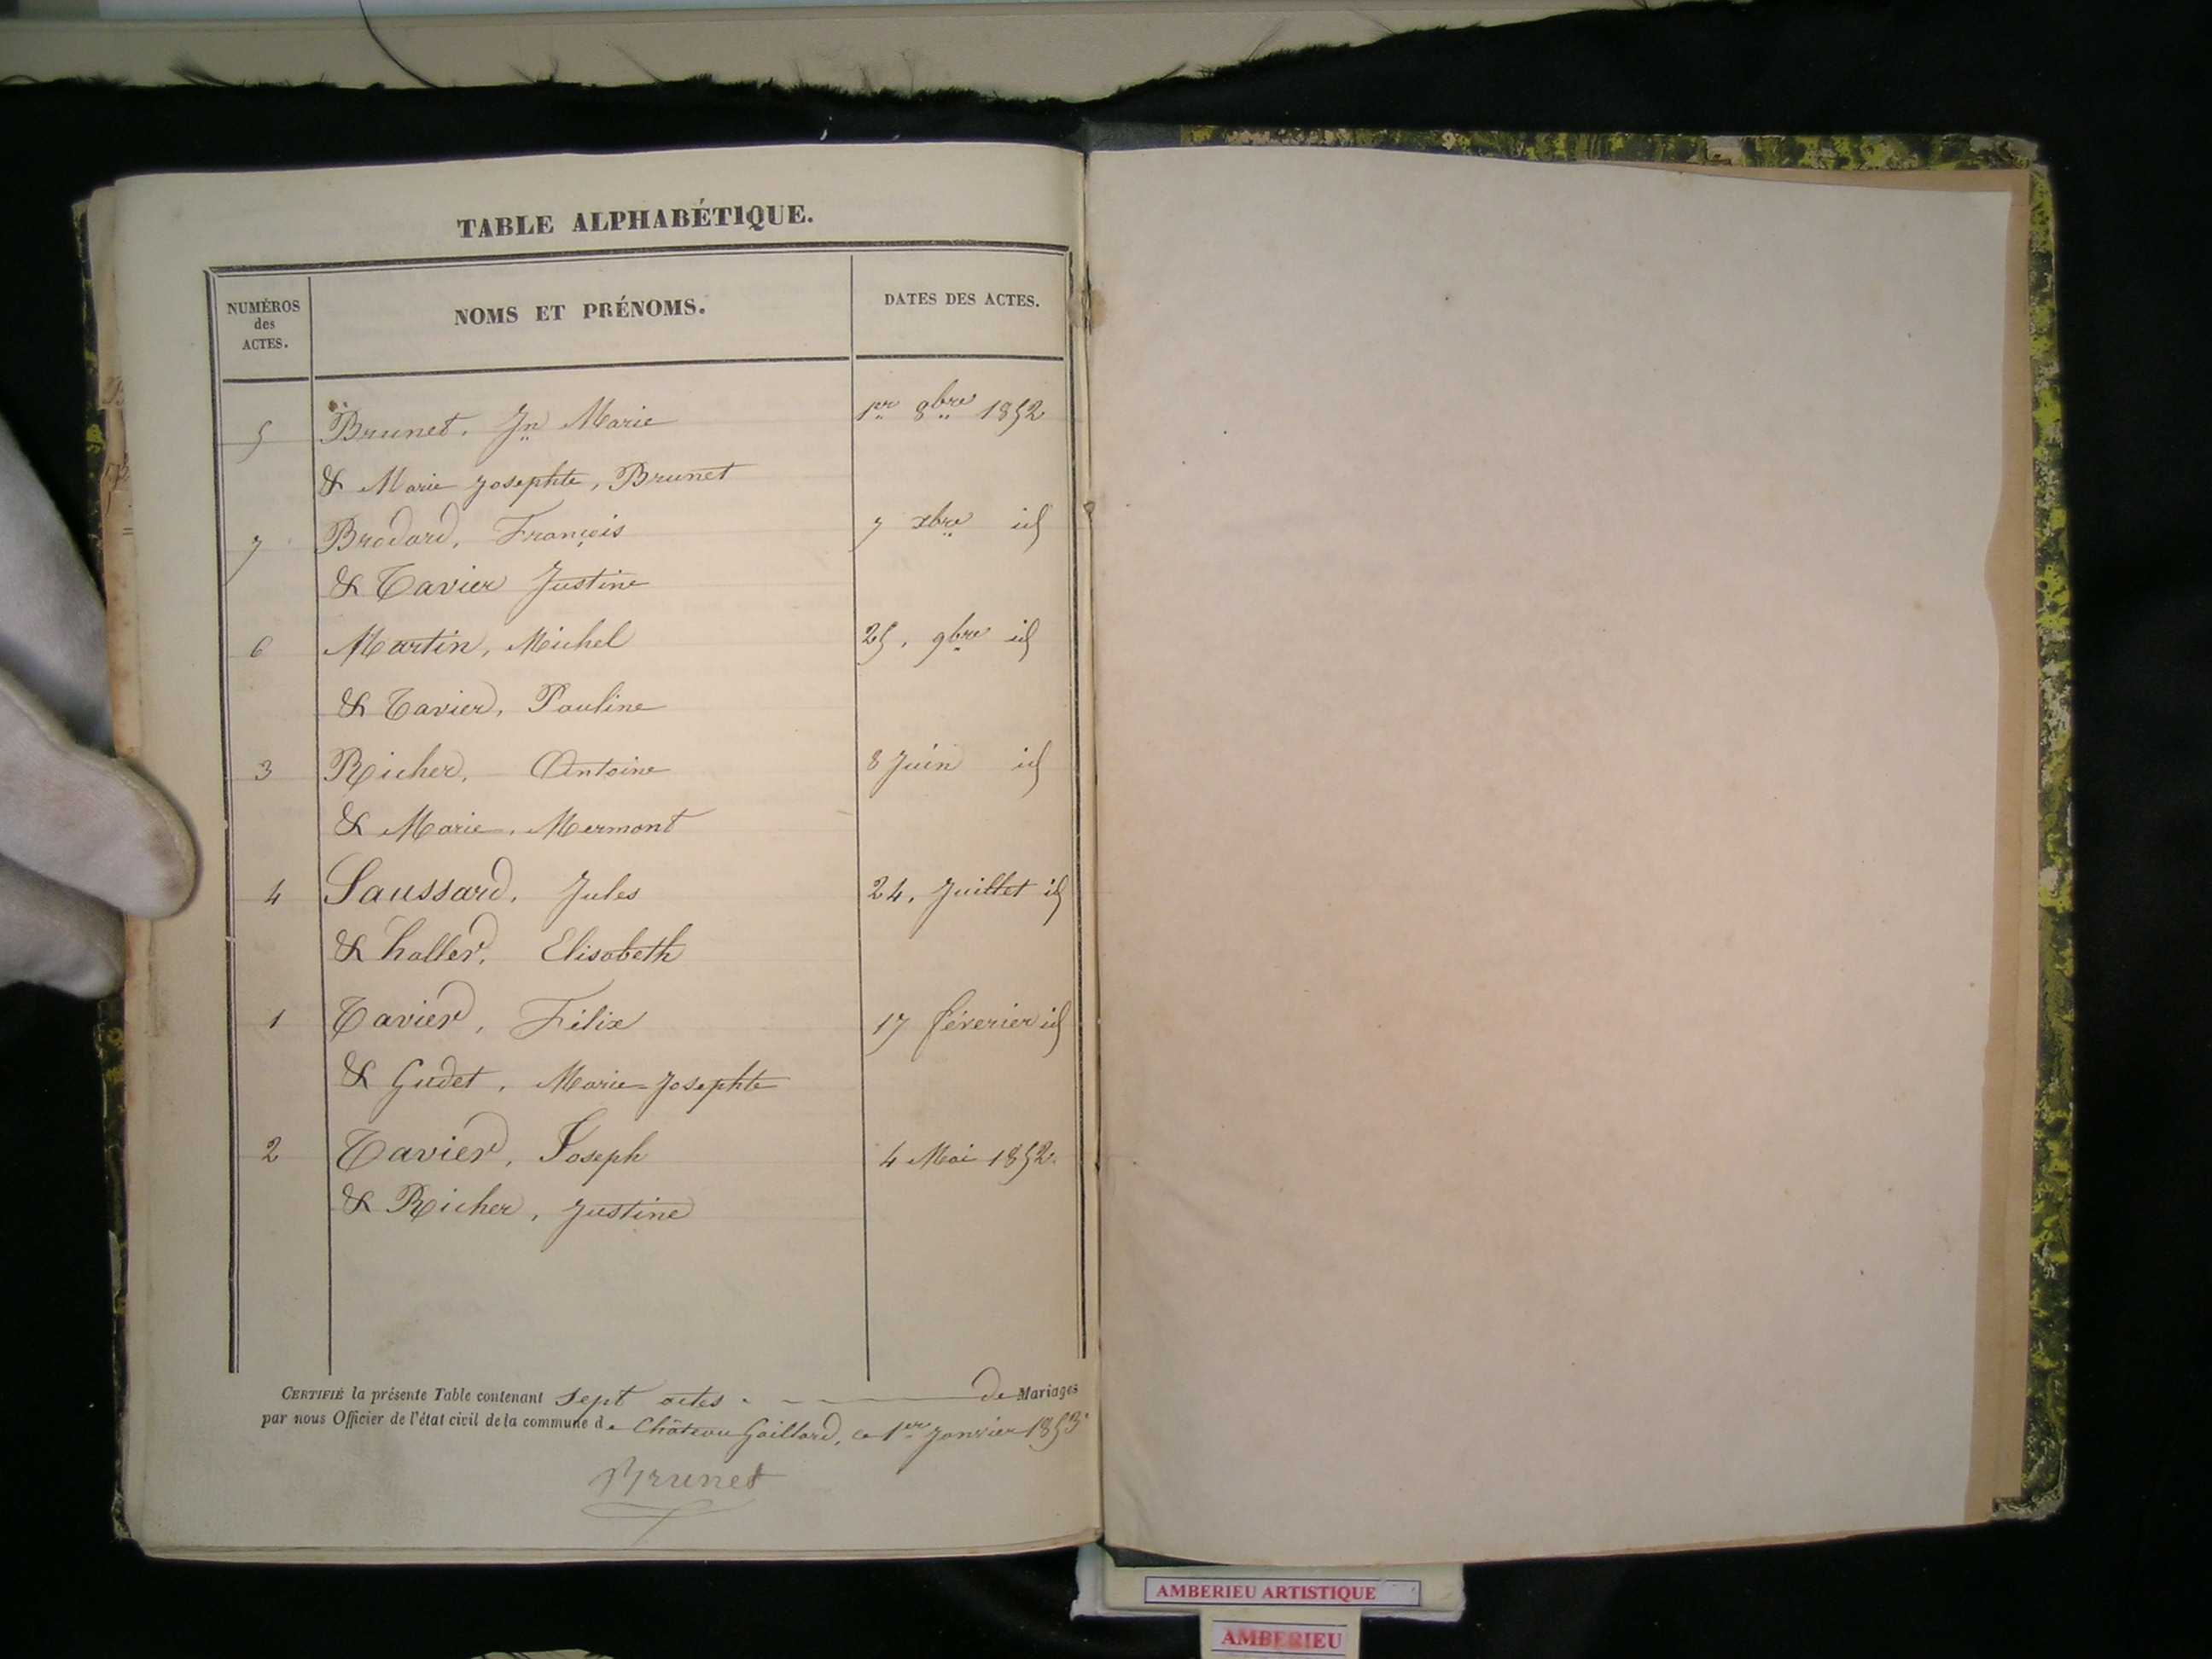 TABLE ALPHABÉTIQUE.
NUMÉROS des ACTES. NOMS ET PRÉNOMS. DATES DES ACTES.
5 Brunet, Jn Marie 1er 8bre 1852
& Marie Josephte, Brunet
7 Brodard, François 7 xbre id
& Tavier Justine
6 Martin, Michel 25. 9bre id
& Tavier, Pauline
3 Richer, Antoine 8 Juin id
& Marie, Mermont
4 Saussard, Jules 24, Juillet id
& haller, Elisabeth
1 Tavier, Félix 17 féverier id
& Gudet, Marie-Josephte
2 Tavier, Joseph 4 Mai 1852.
& Richer, Justine
CERTIFIÉ la présente Table contenant Sept actes de Mariages
par nous Officier de l'état civil de la commune de Château Gaillard, ce 1er Janvier 1853
Brunet
AMBERIEU ARTISTIQUE
AMBERIEU